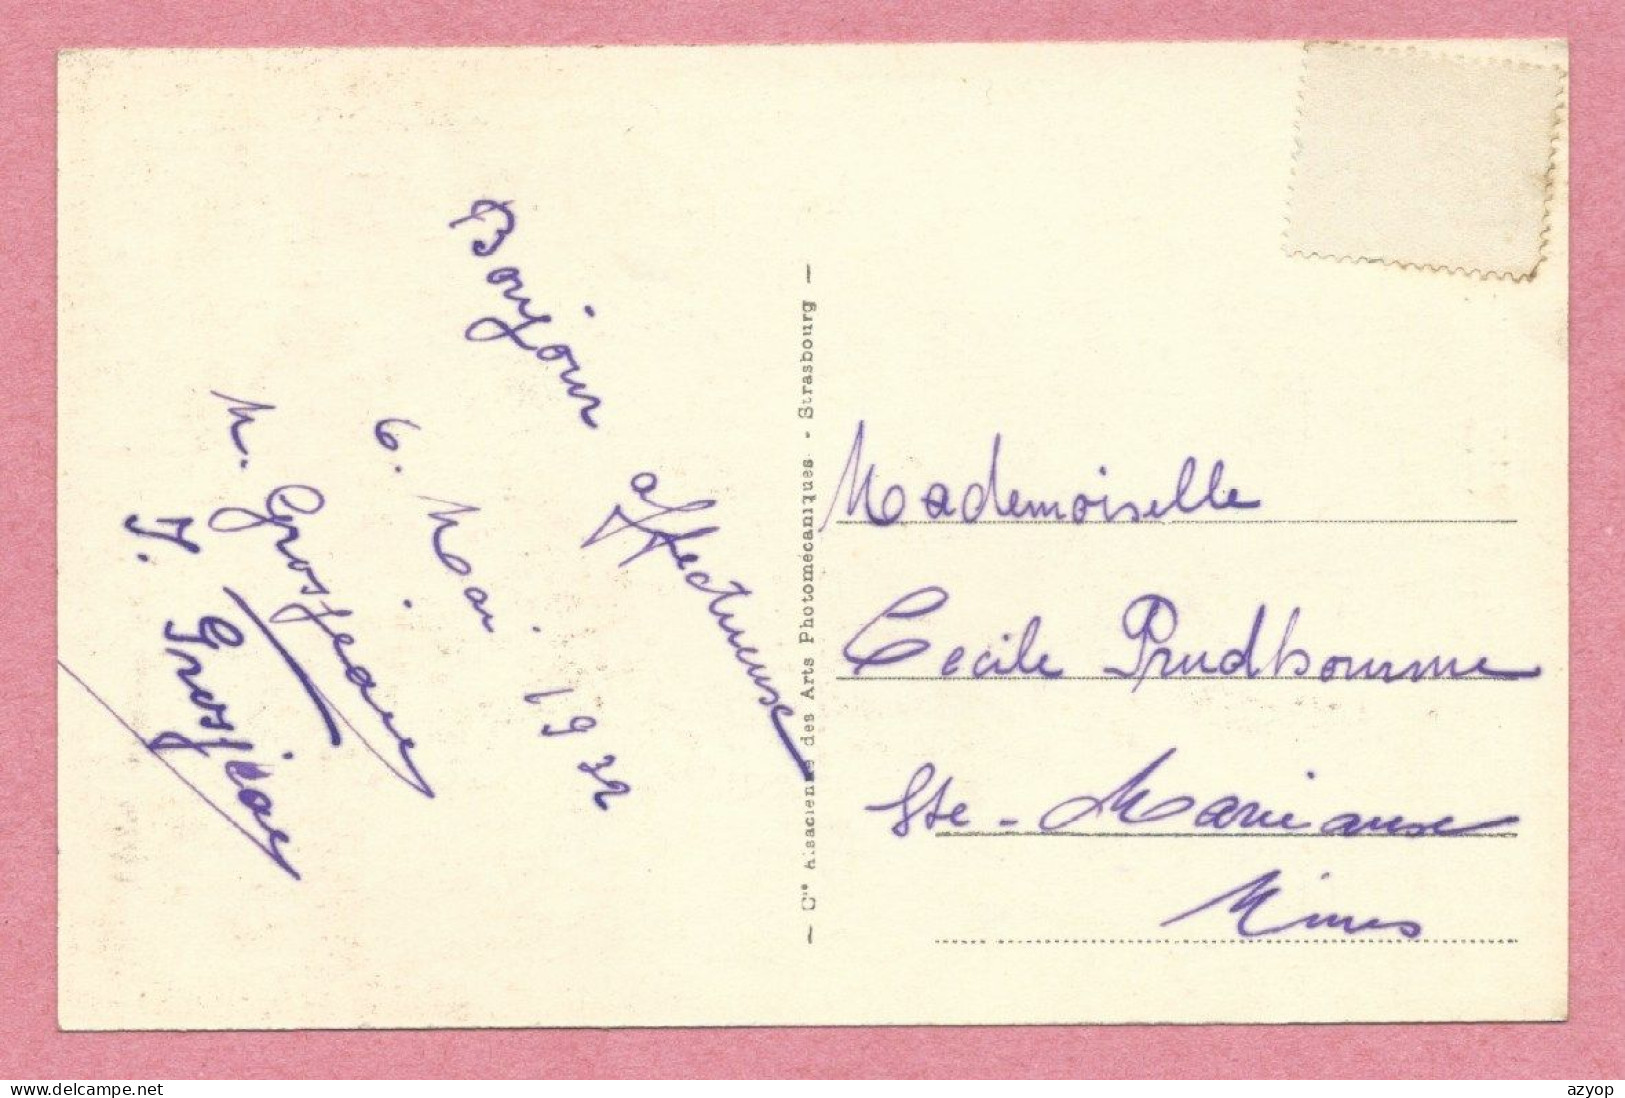 Bonjour affectueuse
6. Mai. 1932
M. Grosjean
J. Grosjean
— Cie Alsacienne des Arts Photomécaniques - Strasbourg —
Mademoiselle
Cecile Prudhomme
Ste - Marie aux
Mines
delcampe.net
azyop